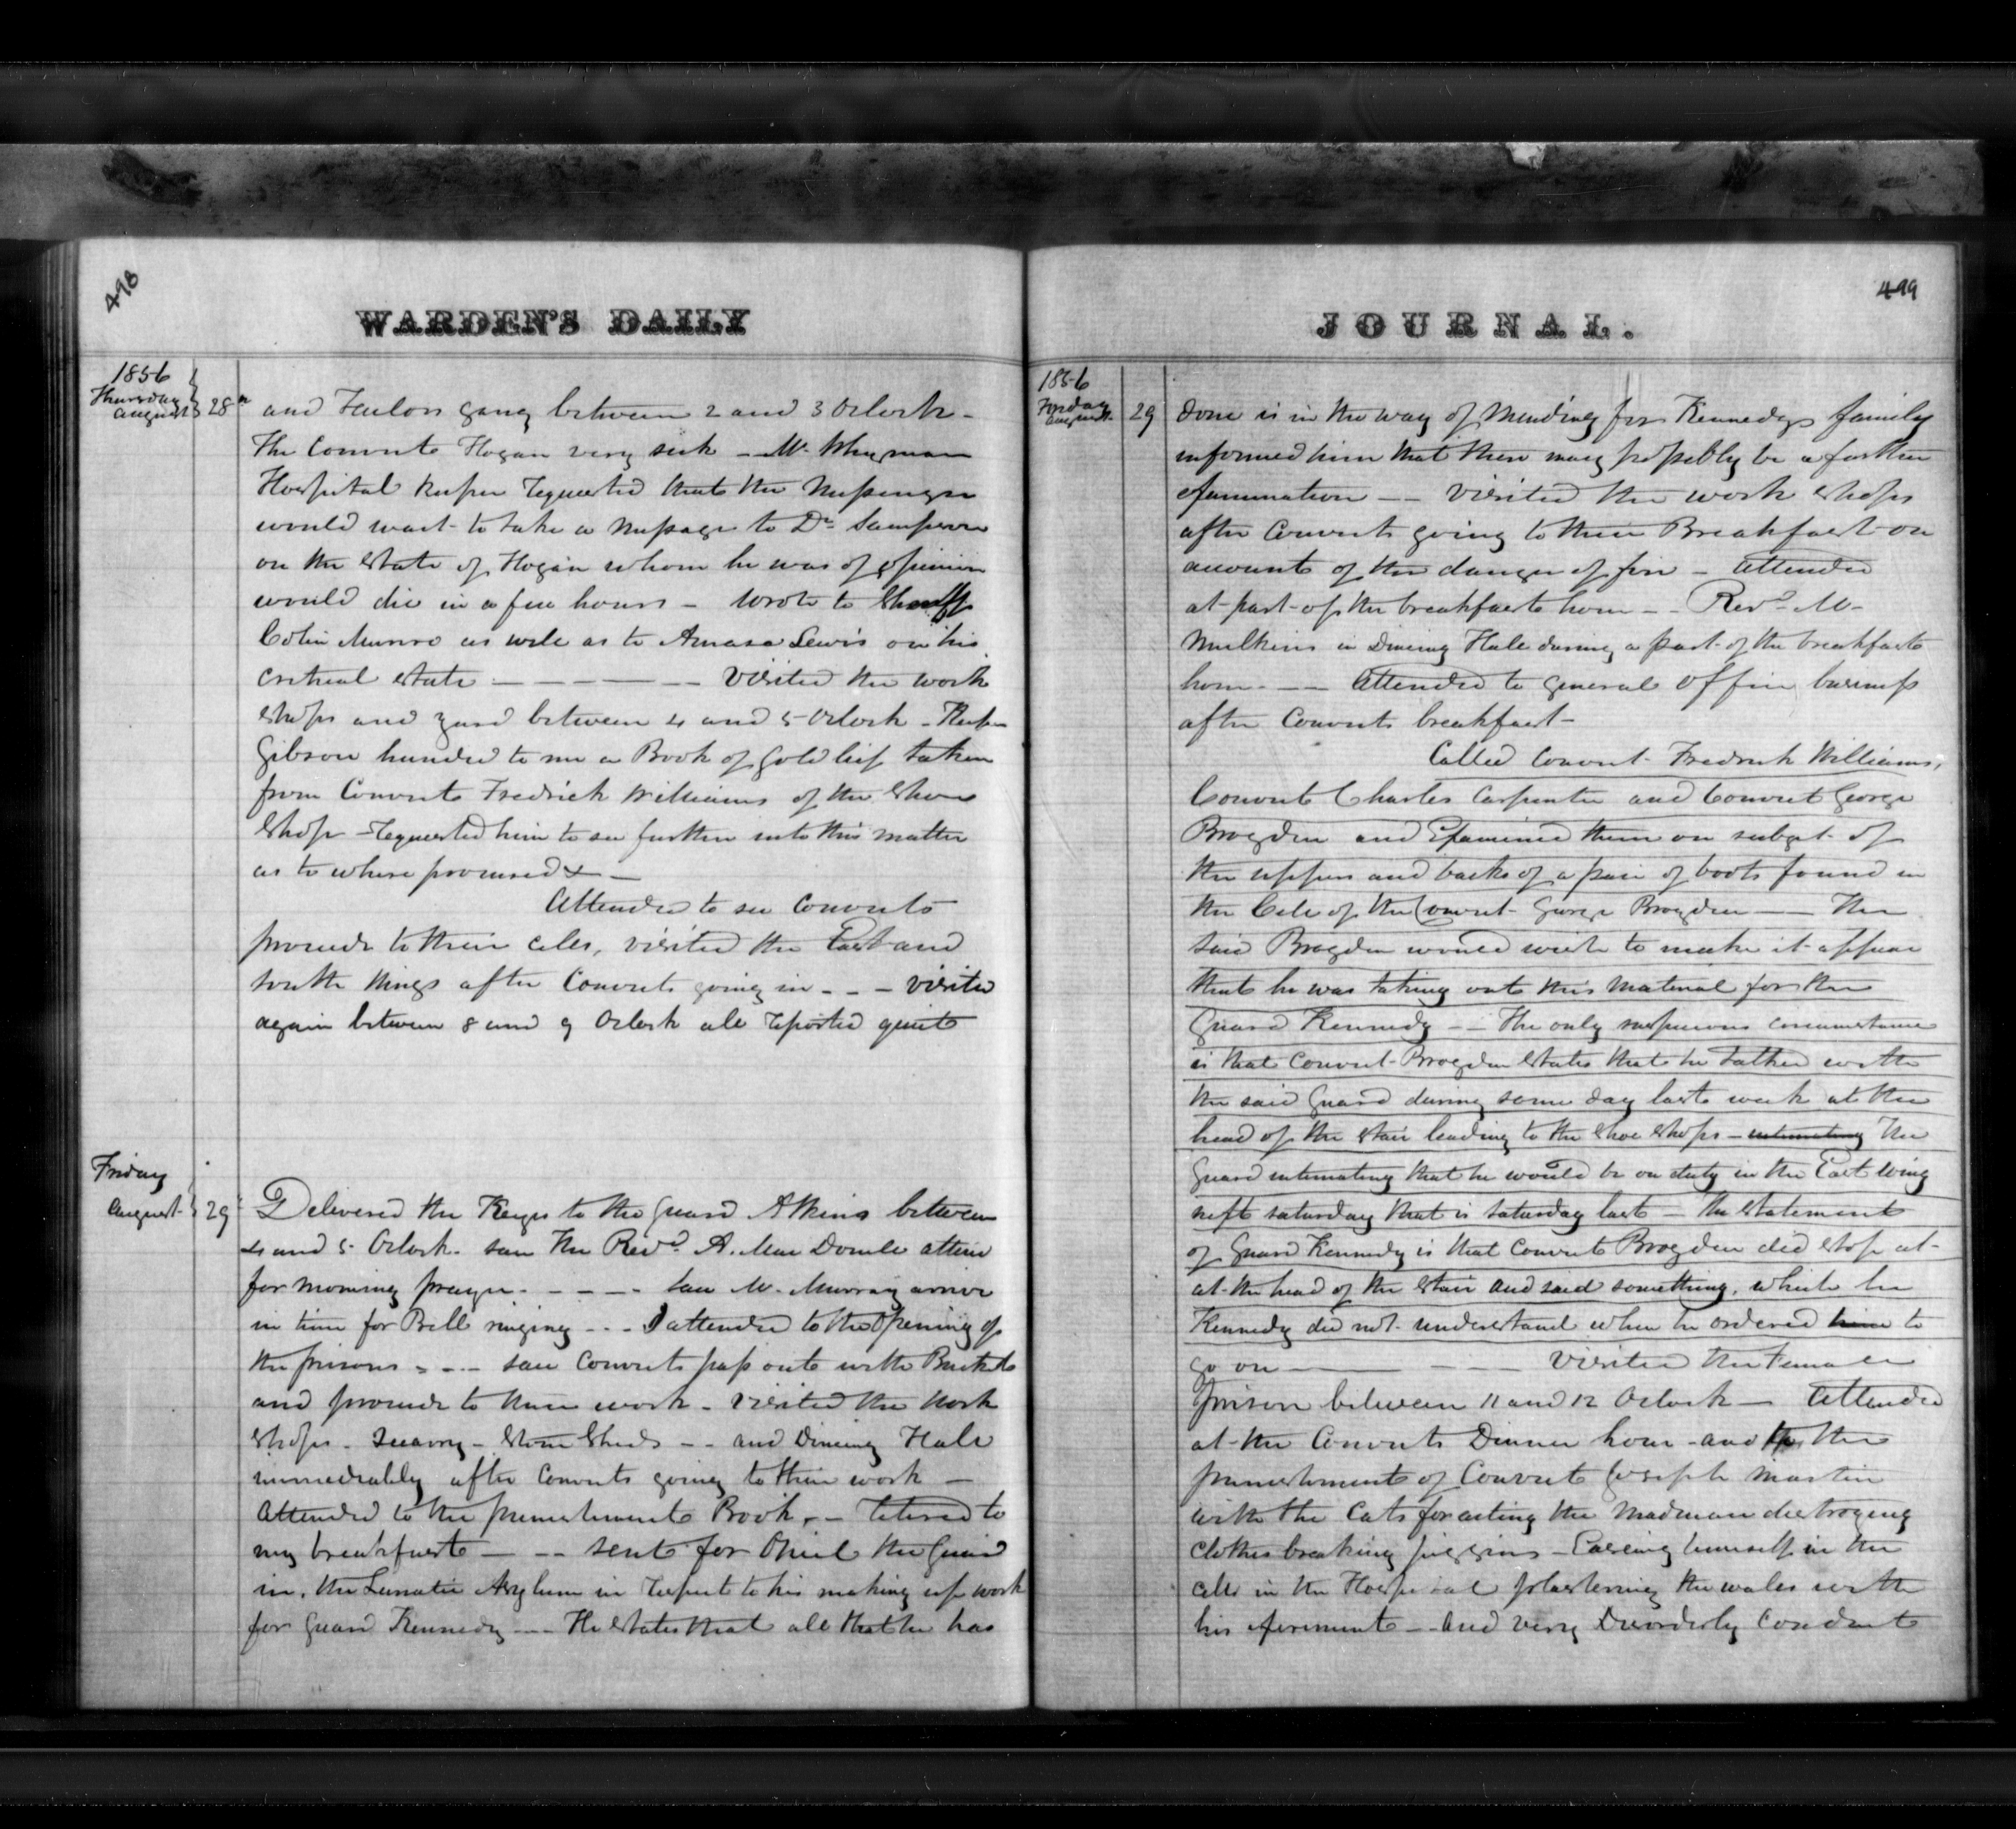 498
WARDEN'S DAILY
1856
Thursday
August 28th
and Tailors gang between 2 and 3 Oclock -
The Convict Hogan very sick - Mr.
Hospital Keeper requested that the Messenger
would wait to take a Message to Dr. Sampson
on the state of Hogan whom he was of opinion
would die in a few hours - Wrote to Sheriff
Colin Munro as well as to Amasa Lewis on his
critical state - - - - - Visited the work
shops and yard between 4 and 5 Oclock - Keeper
Gibson handed to me a Book of Gold leif taken
from Convict Fredrick Williams of the Shoe
Shop - requested him to see further into this matter
as to where procured & -
Attended to see Convicts
proceed to their cells, visited the East and
South Wings after Convicts going in - - - visited
again between 8 and 9 Oclock all reported quiet
Friday
August 29
Delivered the Keys to the Guard Atkins between
4 and 5 Oclock. saw the Revd. A. Mac Donell attend
for morning prayer - - - - saw Mr. Murray arrive
in time for Bell ringing - - - I attended to the Opening of
the prisons - - - saw Convicts pass out with Buckets
and proceed to their work - Visited the Work
Shops - Quarry - Stone Sheds - - and Dining Hall
immediably after Convicts going to their work -
Attended to the punishment Book - - retired to
my breakfast - - - sent for the Guard
in, the Lunatic Asylum in respect to his making up work
for Guard Kennedy - - - He states that all that he has
499
JOURNAL.
1856
Friday
August 29
done is in the way of Mending for Kennedys family
informed him that there may possibly be a further
examination - - Visited the work Shops
after Convicts going to their Breakfast on
account of the danger of fire - Attended
at part of the breakfast hour - - Revd. Mr.
Mulkins in Dining Hall during a part of the breakfast
hour - - Attended to general Office business
after Convicts breakfast -
Called Convict Fredrick Williams,
Convict Charles Carpenter and Convict George
Brogden and Examined them on subject of
the uppers and backs of a pair of boots found in
the Cell of the Convict George Brogden - - The
said Brogden would wish to make it appear
that he was taking out this material for the
Guard Kennedy - - The only suspicious circumstance
is that Convict Brogden states that he talked with
the said Guard during some day last week at the
head of the stair leading to the Shoe Shops - intimating The
Guard intimating that he would be on duty in the East Wing
next saturday that is Saturday last - The statement
of Guard Kennedy is that Convict Brogden did stop at
at the head of the stair and said something, which he
Kennedy did not understand when he ordered him to
go on - - - Visited the Female
Prison between 11 and 12 Oclock - Attended
at the Convicts Dinner hour - and the
punishment of Convict Joseph Martin
with the Cats for acting the Madman destroying
clothes breaking piggins - Easeing himself in the
cells in the Hospital plastering the walls with
his excrement - - and very Disorderly Conduct